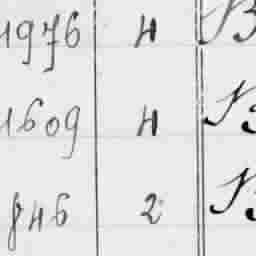 1976 4 B
1609 4 B
846 2 B